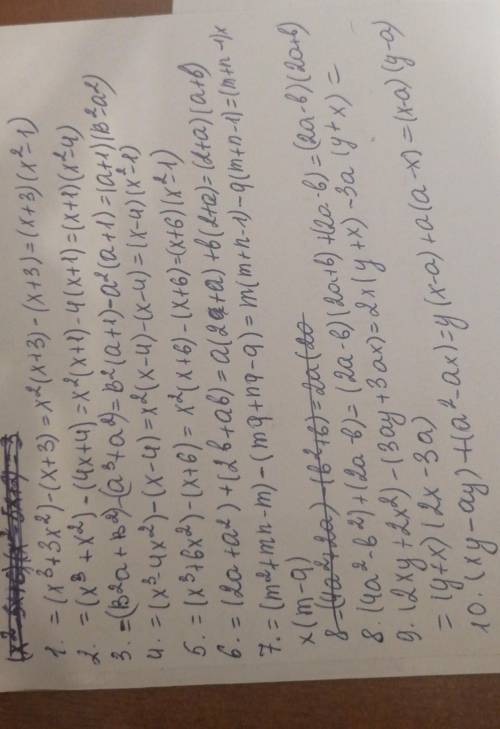 1. = (x³+3x²)-(x+3)=x²(x+3)-(x+3)=(x+3)(x²-1)
2. = (x³+x²)-(4x+4)=x²(x+1)-4(x+1)=(x+1)(x²-4)
3. =(b²a+b²)-(a³+a²)=b²(a+1)-a²(a+1)=(a+1)(b²-a²)
4. =(x³-4x²)-(x-4)=x²(x-4)-(x-4)=(x-4)(x²-1)
5. =(x³+6x²)-(x+6)=x²(x+6)-(x+6)=(x+6)(x²-1)
6. =(2a+a²)+(2b+ab)=a(2a+a)+b(2+a)=(2+a)(a+b)
7. =(m²+mn-m)-(mq+nq-q)=m(m+n-1)-q(m+n-1)=(m+n-1)x
x(m-q)
8-(4a²+2a)-(b²+b)=2a(2a
8. (4a²-b²)+(2a-b)=(2a-b)(2a+b)+(2a-b)=(2a-b)(2a+b)
9. (2xy+2x²)-(3ay+3ax)=2x(y+x)-3a(y+x)=
=(y+x)(2x-3a)
10. (xy-ay)+(a²-ax)=y(x-a)+a(a-x)=(x-a)(y-a)